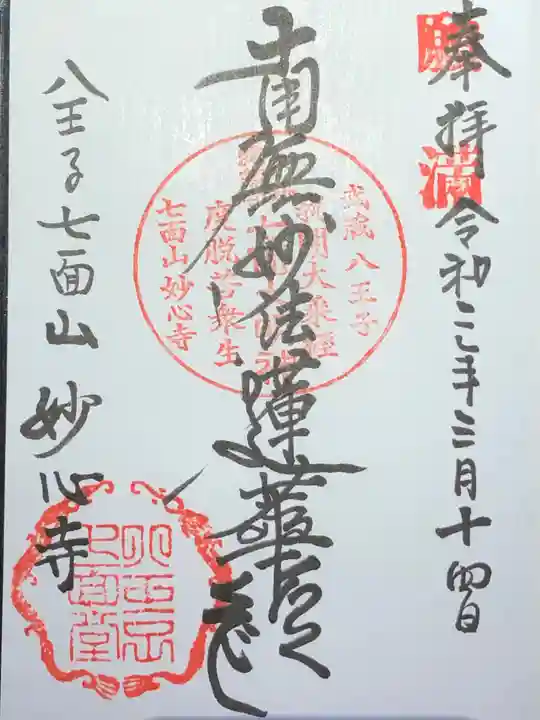 奉拝
令和二年三月十四日
南無妙法蓮華経
八王子七面山
妙心寺
満
武蔵八王子
説聞大乗経
度脱苦衆生
七面山妙心寺
八王子
七面堂